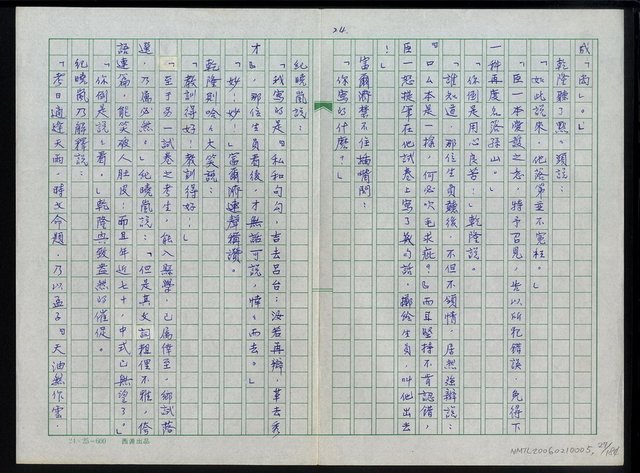 24.
成『雨』。」
乾隆聽了點々頭說：
「如此說來，他落第並不寃枉。」
「臣一本愛護之意，特予召見，告以所犯錯誤，免得下
一科再度名落孫山。」
「你倒是用心良苦。」乾隆說。
「誰知道，那位生員聽後，不但不領情，居然強辯說：
『口厶本是一樣，何必吹毛求疵？』而且堅持不肯認錯，
臣一怒提筆在他試卷上寫了幾句話，擲給生員，叫他出去
！」
富爾濟禁不住插嘴問：
「你寫的什麽？」
紀曉嵐說：
「我寫的是『私和句勾，吉去呂台；汝若再辯，革去秀
才』，那位生員看後，才無話可說，悻々而去。」
「妙！妙！」富爾濟連聲稱讚。
乾隆則哈々大笑說：
「教訓得好！教訓得好！」
「至于另一試卷之考生，能入縣學，已屬倖至，鄉試落
選，乃屬必然。」紀曉嵐說：「但是其文詞粗俚不雅，俗
語連篇，能笑破人肚皮；而且年近七十，中式已無望了。」
「你倒是說々看。」乾隆興致盎然的催促。
紀曉嵐乃解釋說：
「考日適逢天雨，時文命題，乃以孟子『天油然作雲，
24×25=600 西源出品
NMTL20060210005, 27/184